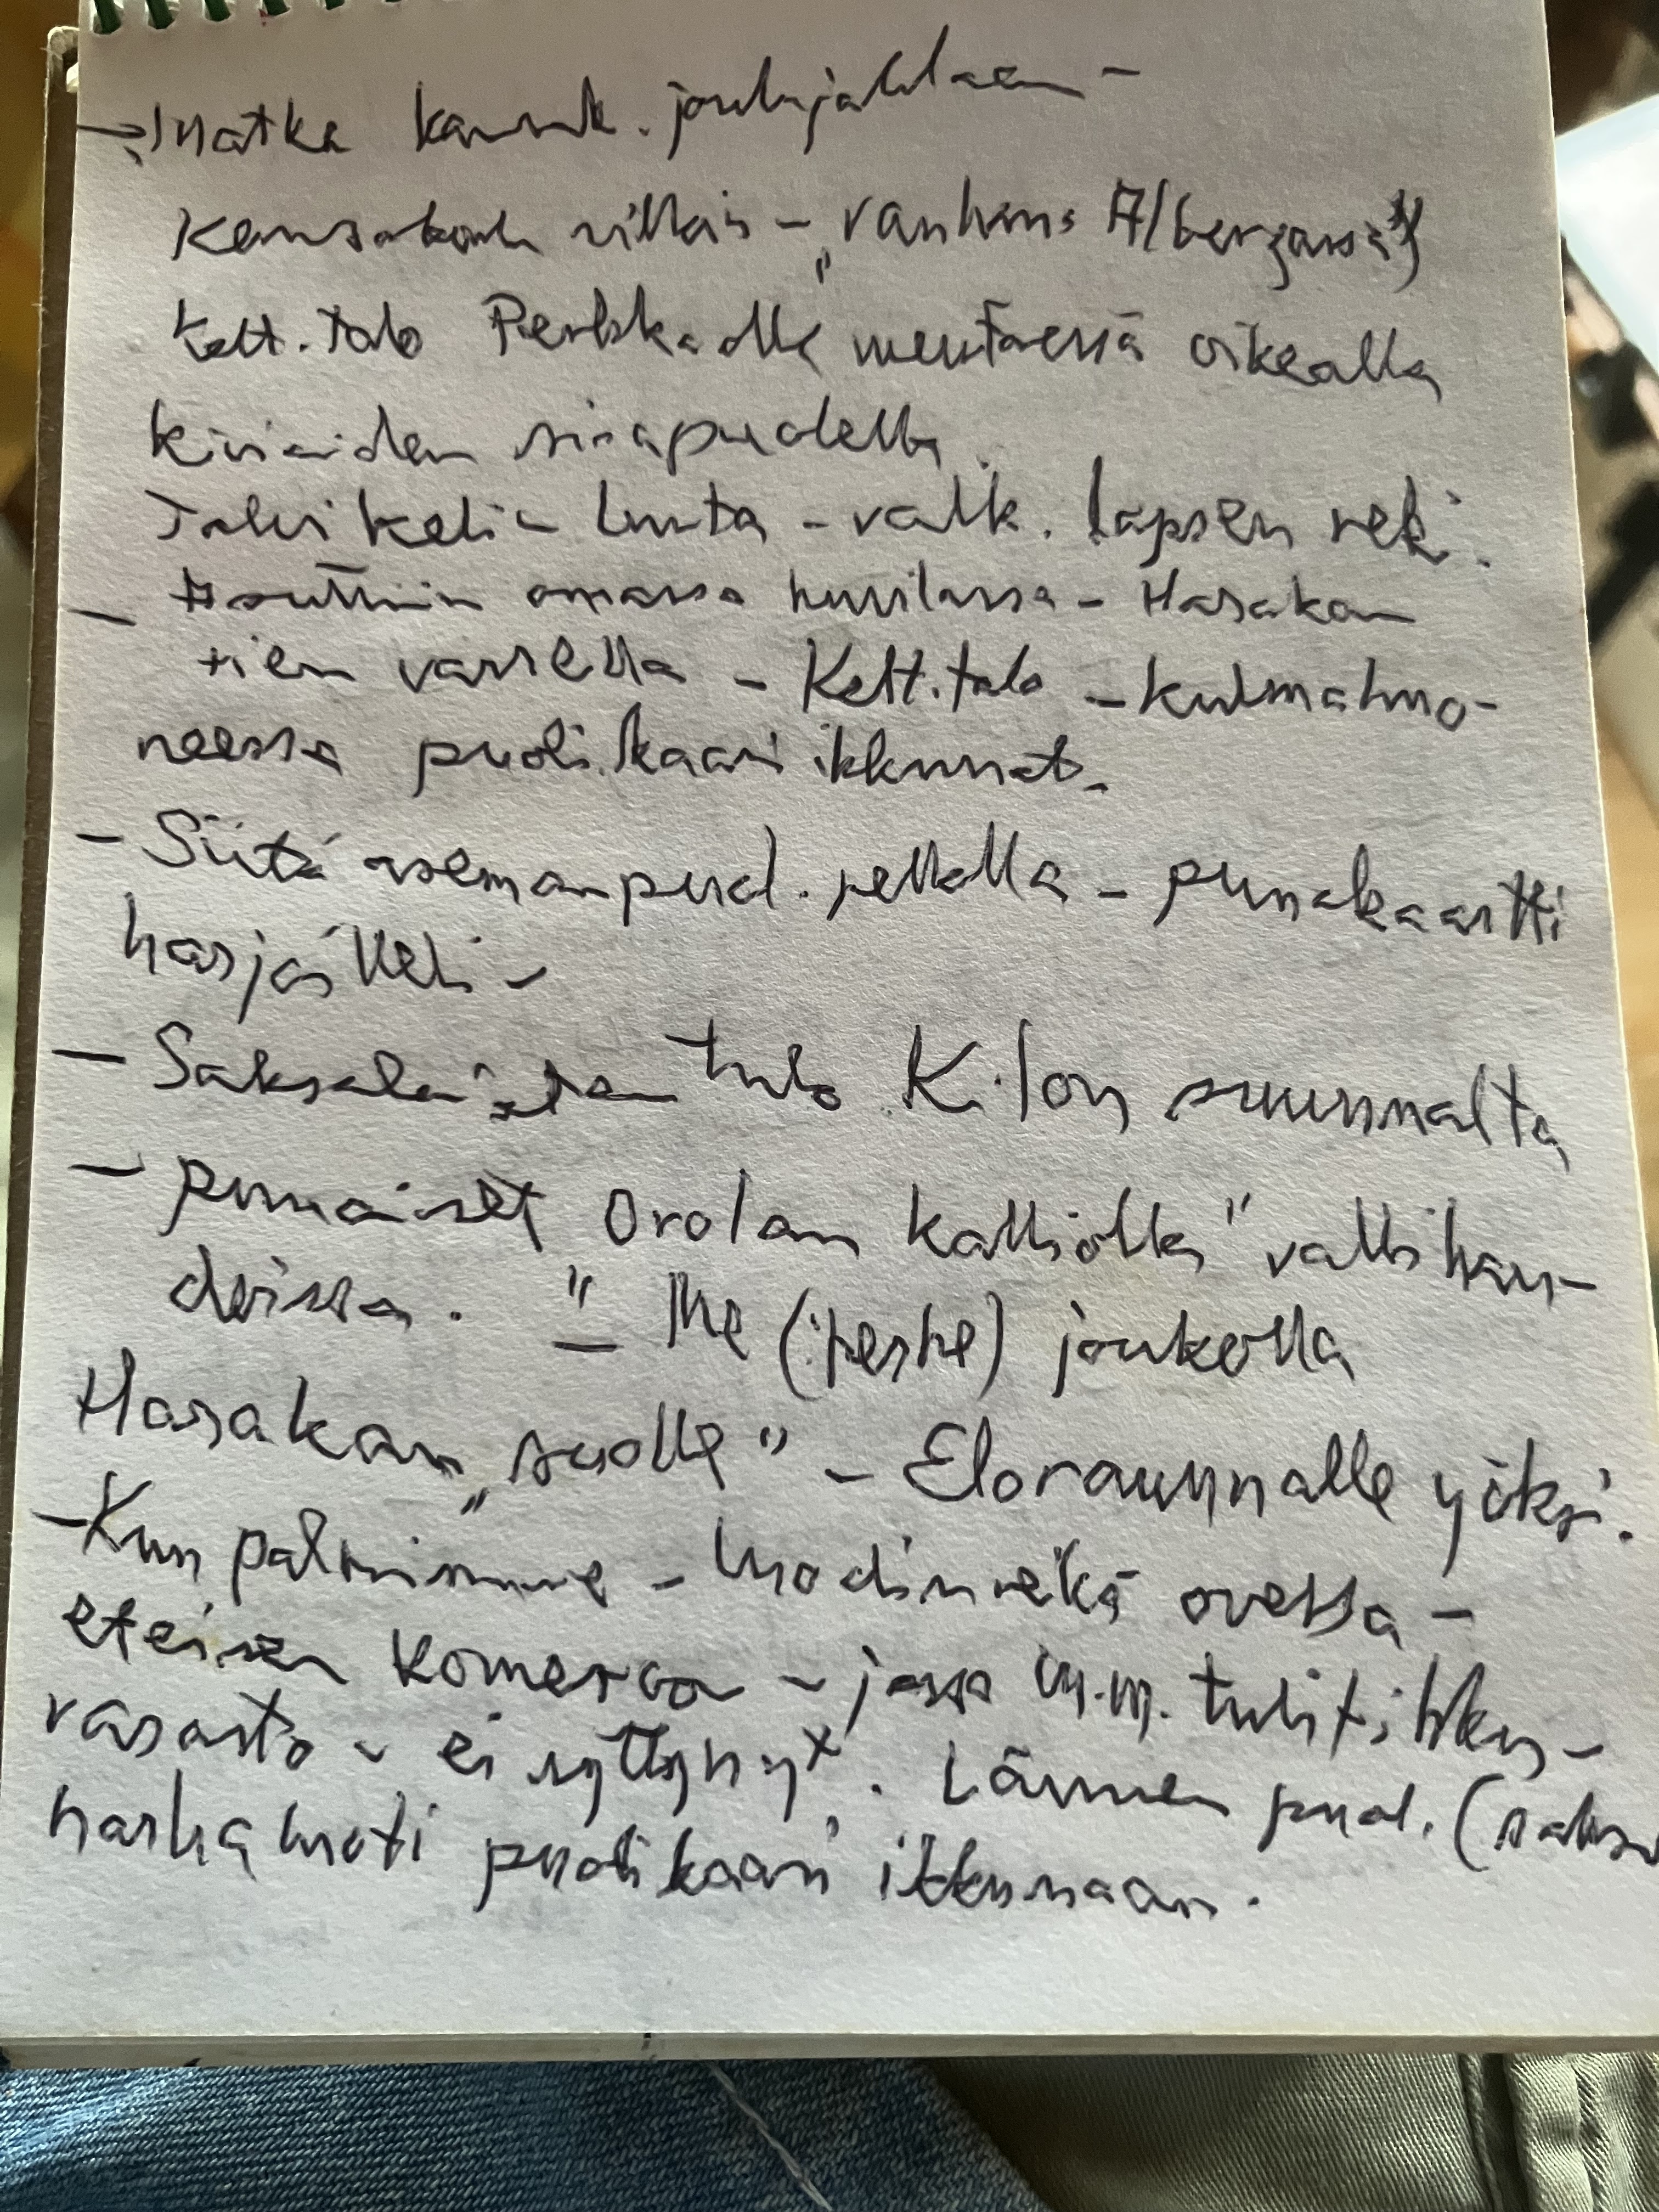 → Matka kansak. joulujuhlaan –
Kansakoulu silloin – „vanhin: Albergassa")
kelt. talo Perkkaalle mentäessä oikealla
kiviaidan sisäpuolella.
Talvikeli – lunta – valk. lapsen reki.
– Asuttiin omassa huvilassa – Harakan
tien varrella – Kelt. talo – kulmahuo-
neessa puolikaari ikkunat.
– Siitä asemanpuol. pellolla – punakaartti
harjoitteli –
– Saksalaisten tulo Kilon suunnalta
– punaiset Orolan kalliolla " vallihau-
doissa. " – Me (perhe) joukolla
Harakan „suolle" – Eloraunnalle yöksi.
– Kun palasimme – luodinreikä ovessa –
eteisen komeroon – jossa m.m. tulitikku-
varasto – ei syttynyt. Lännen puol. (saksa
harhaluoti puolikaari ikkunaan.